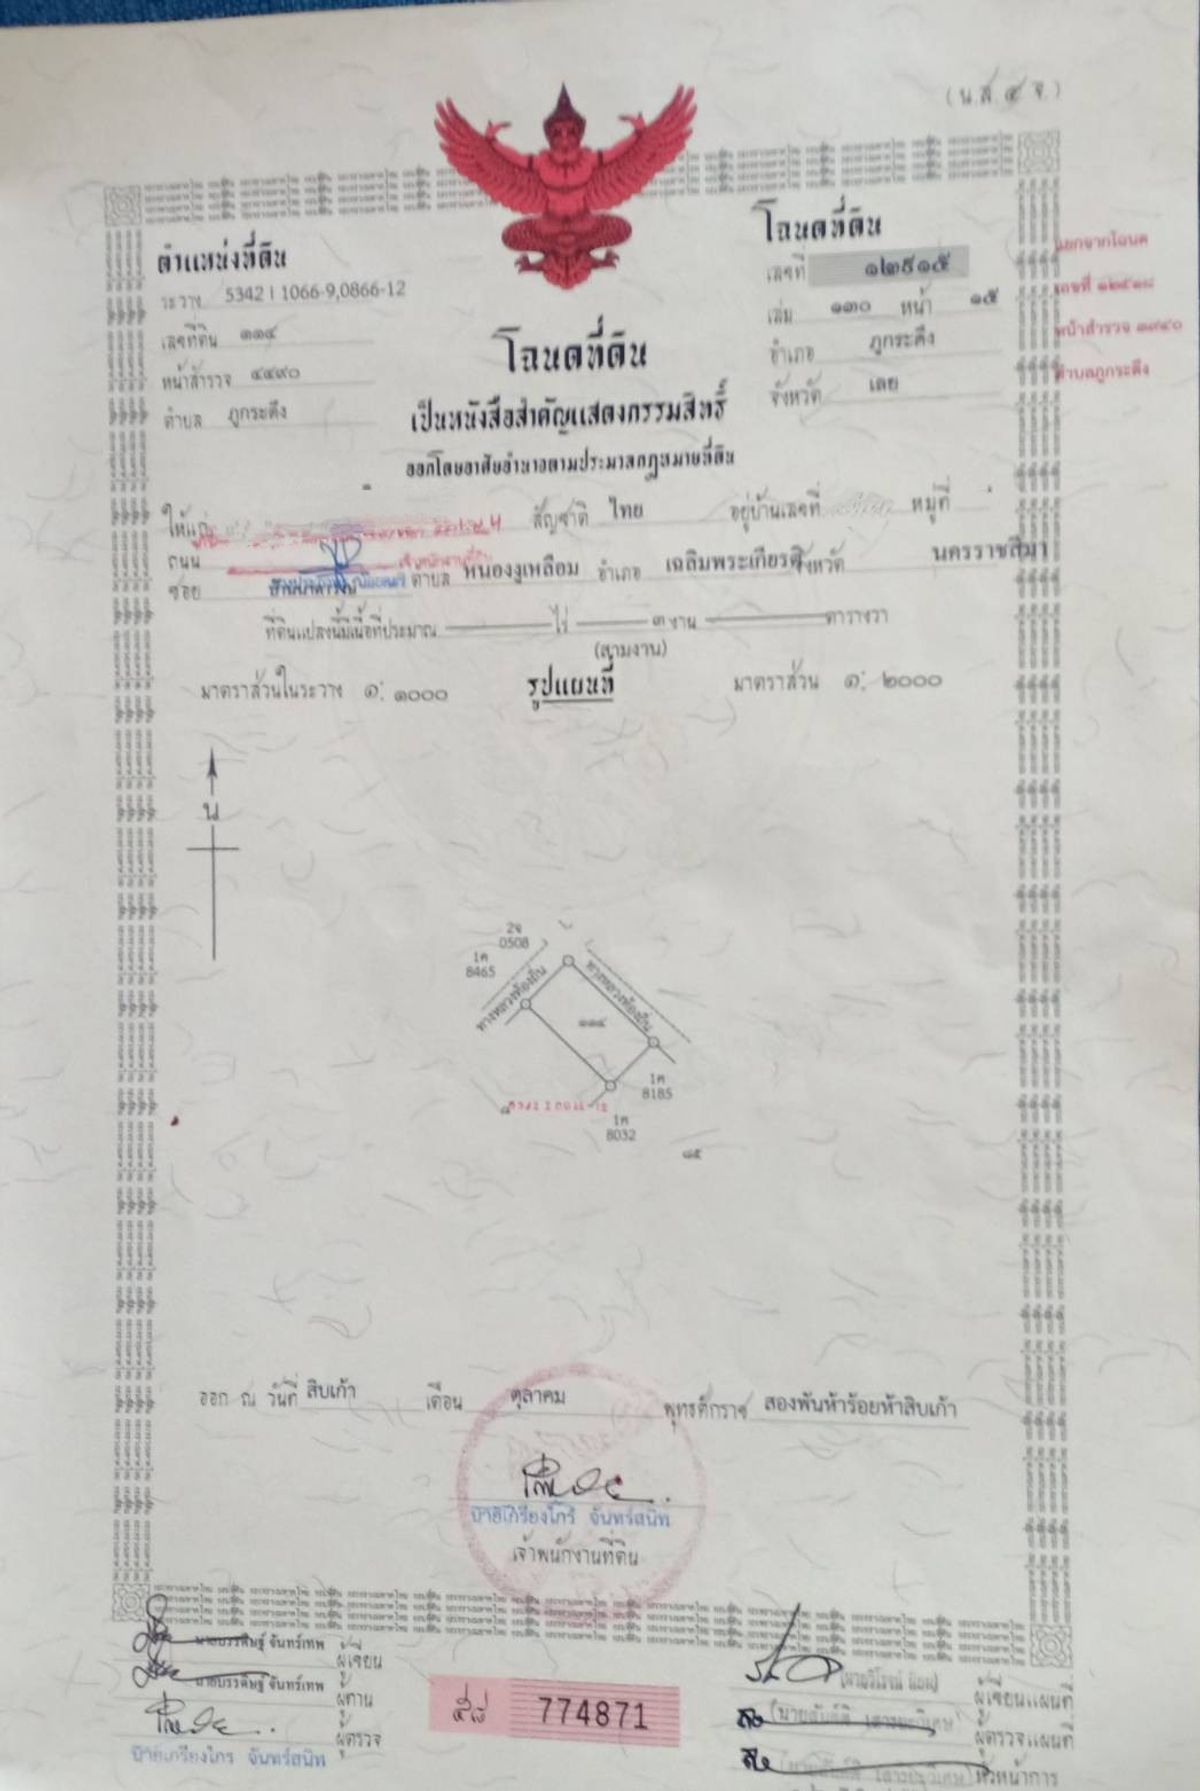 (น.ส.๔ จ.)
ตำแหน่งที่ดิน
ระวาง 5342 I 1066-9,0866-12
เลขที่ดิน ๑๑๔
หน้าสำรวจ ๔๔๙๐
ตำบล ภูกระดึง
โฉนดที่ดิน
เลขที่
เล่ม ๑๓๐ หน้า ๑๕
อำเภอ ภูกระดึง
จังหวัด เลย
แยกจากโฉนด
เลขที่
หน้าสำรวจ
ตำบลภูกระดึง
โฉนดที่ดิน
เป็นหนังสือสำคัญแสดงกรรมสิทธิ์
ออกโดยอาศัยอำนาจตามประมวลกฎหมายที่ดิน
ให้แก่ สัญชาติ ไทย อยู่บ้านเลขที่ หมู่ที่
ถนน
ซอย ตำบล หนองงูเหลือม อำเภอ เฉลิมพระเกียรติ จังหวัด นครราชสีมา
ที่ดินแปลงนี้มีเนื้อที่ประมาณ ไร่ ๓ งาน ตารางวา
(สามงาน)
มาตราส่วนในระวาง ๑: ๑๐๐๐ รูปแผนที่ มาตราส่วน ๑: ๒๐๐๐
น
2จ
0508
1ค
8465
ทางหลวงท้องถิ่น
ทางหลวงท้องถิ่น
๑๑๔
1ค
8185
1ค
8032
๘๕
ออก ณ วันที่ สิบเก้า เดือน ตุลาคม พุทธศักราช สองพันห้าร้อยห้าสิบเก้า
นายเกรียงไกร จันทร์สนิท
เจ้าพนักงานที่ดิน
นายบรรดิษฐ์ จันทร์เทพ ผู้เขียน
นายบรรดิษฐ์ จันทร์เทพ ผู้ทาน
ผู้ตรวจ
นายเกรียงไกร จันทร์สนิท
๕๘ 774871
ผู้เขียนแผนที่
ผู้ตรวจแผนที่
หัวหน้าการ